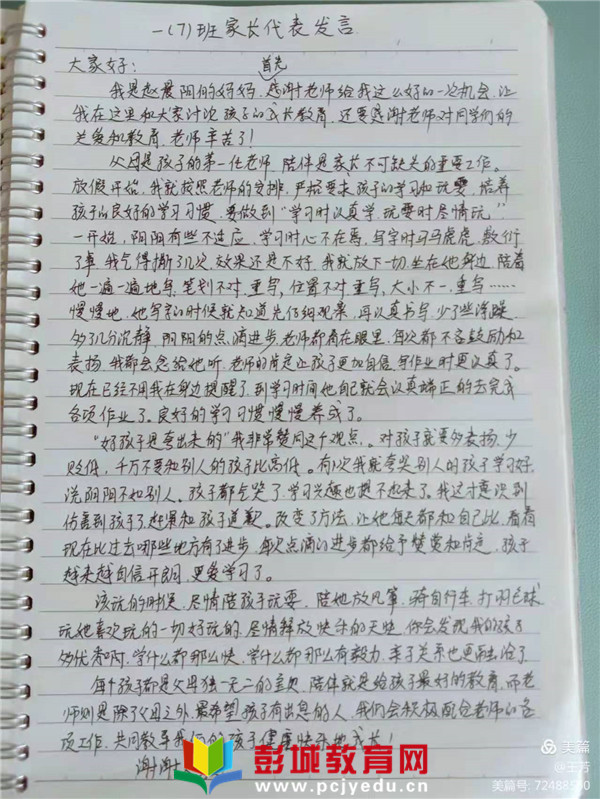 一(7)班家长代表发言
大家好:
首先
我是赵晨阳的妈妈,感谢老师给我这么好的一次机会,让
我在这里和大家讨论孩子的成长教育,还要感谢老师对同学们的
关爱和教育,老师辛苦了!
父母是孩子的第一任老师,陪伴是家长不可缺失的重要工作。
放假开始,我就按照老师的安排,严格要求孩子的学习和玩耍,培养
孩子的良好的学习习惯,要做到“学习时认真学,玩耍时尽情玩”
一开始,阴阴有些不适应,学习时心不在焉,写字时马马虎虎,敷衍
了事,我气得撕了几次,效果还是不好,我就放下一切,坐在她身边,陪着
她一遍一遍地写,笔划不对,重写,位置不对重写,大小不一,重写……
慢慢地,她写字的时候就知道先仔细观察,再认真书写,少了些浮躁,
多了几分沉静,阴阴的点滴进步老师都看在眼里,每次都不吝鼓励和
表扬,我都会念给她听,老师的肯定让孩子更加自信,写作业时更认真了。
现在已经不用我在身边提醒了,到学习时间她自己就会认真端正的去完成
各项作业了。良好的学习习惯慢慢养成了。
“好孩子是夸出来的”我非常赞同这个观点。对孩子就要多表扬,少
贬低,千万不要和别人的孩子比高低。有次我就夸奖别人的孩子学习好,
说阴阴不如别人。孩子都气哭了,学习兴趣也提不起来了。我这才意识到
伤害到孩子了,赶紧和孩子道歉。改变了方法,让她每天都和自己比,看看
现在比过去哪些地方有了进步,每次点滴的进步都给予赞赏和肯定,孩子
越来越自信开朗,更爱学习了。
该玩的时候,尽情陪孩子玩耍,陪她放风筝,骑自行车,打羽毛球,
玩她喜欢玩的一切好玩的,尽情释放快乐的天性,你会发现我的孩子
多优秀啊,学什么都那么快,学什么都那么有毅力,亲子关系也更融洽了。
每个孩子都是父母独一无二的宝贝,陪伴就是给孩子最好的教育,而老
师则是除了父母之外,最希望孩子有出息的人,我们会积极配合老师的各
项工作,共同教导我们的孩子健康快乐地成长!
谢谢
彭城教育网
www.pcjyedu.com
美篇
@王芳
美篇号:72488580